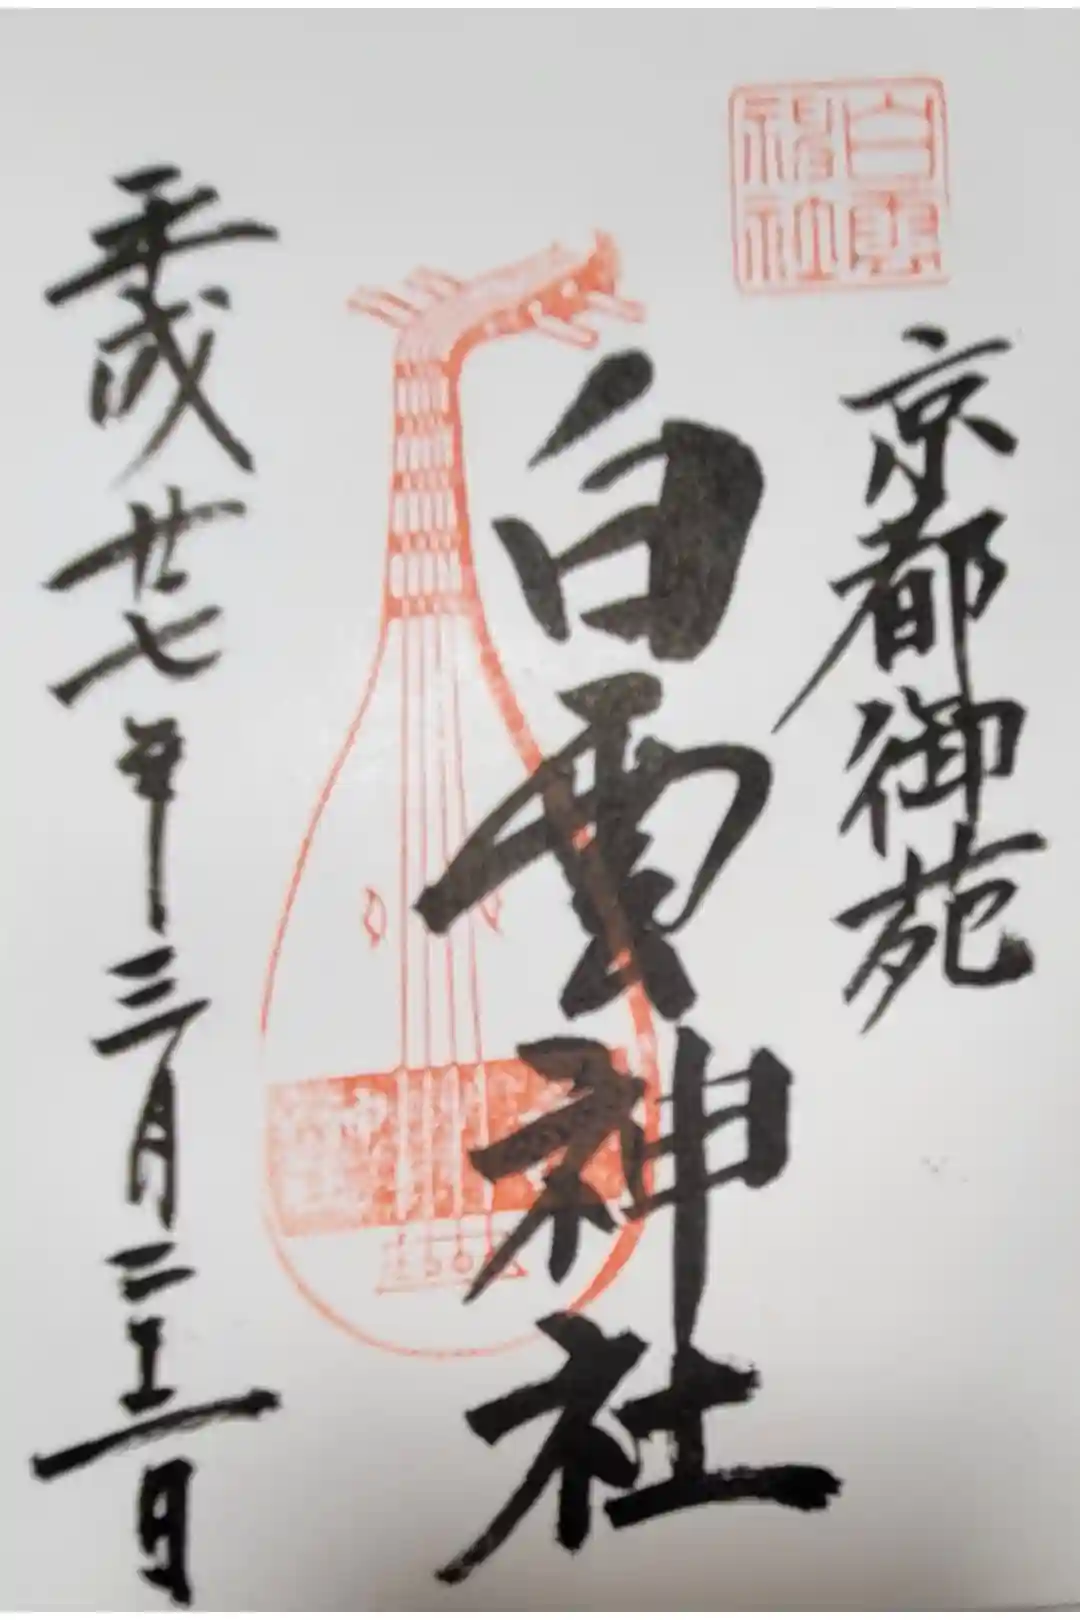 白雲
神社
京都御苑
白雲神社
平成廿七年三月二十三日